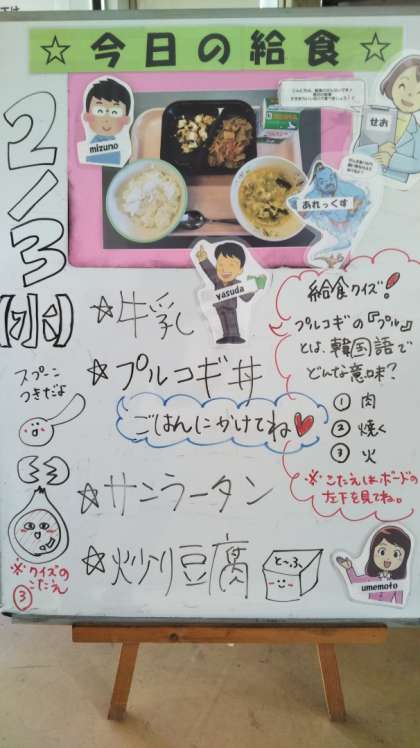 ☆今日の給食☆
mizuno
せお
あれっくす
yasuda
2/3
(水)
☆牛乳
☆プルコギ丼
ごはんにかけてね
☆サンラータン
☆炒り豆腐
とーふ
スプーン
つきだよ
給食クイズ!
プルコギの『プル』
とは、韓国語で
どんな意味?
① 肉
② 焼く
③ 火
※こたえはボードの
左下を見てね。
※クイズの
こたえ
③
umemoto